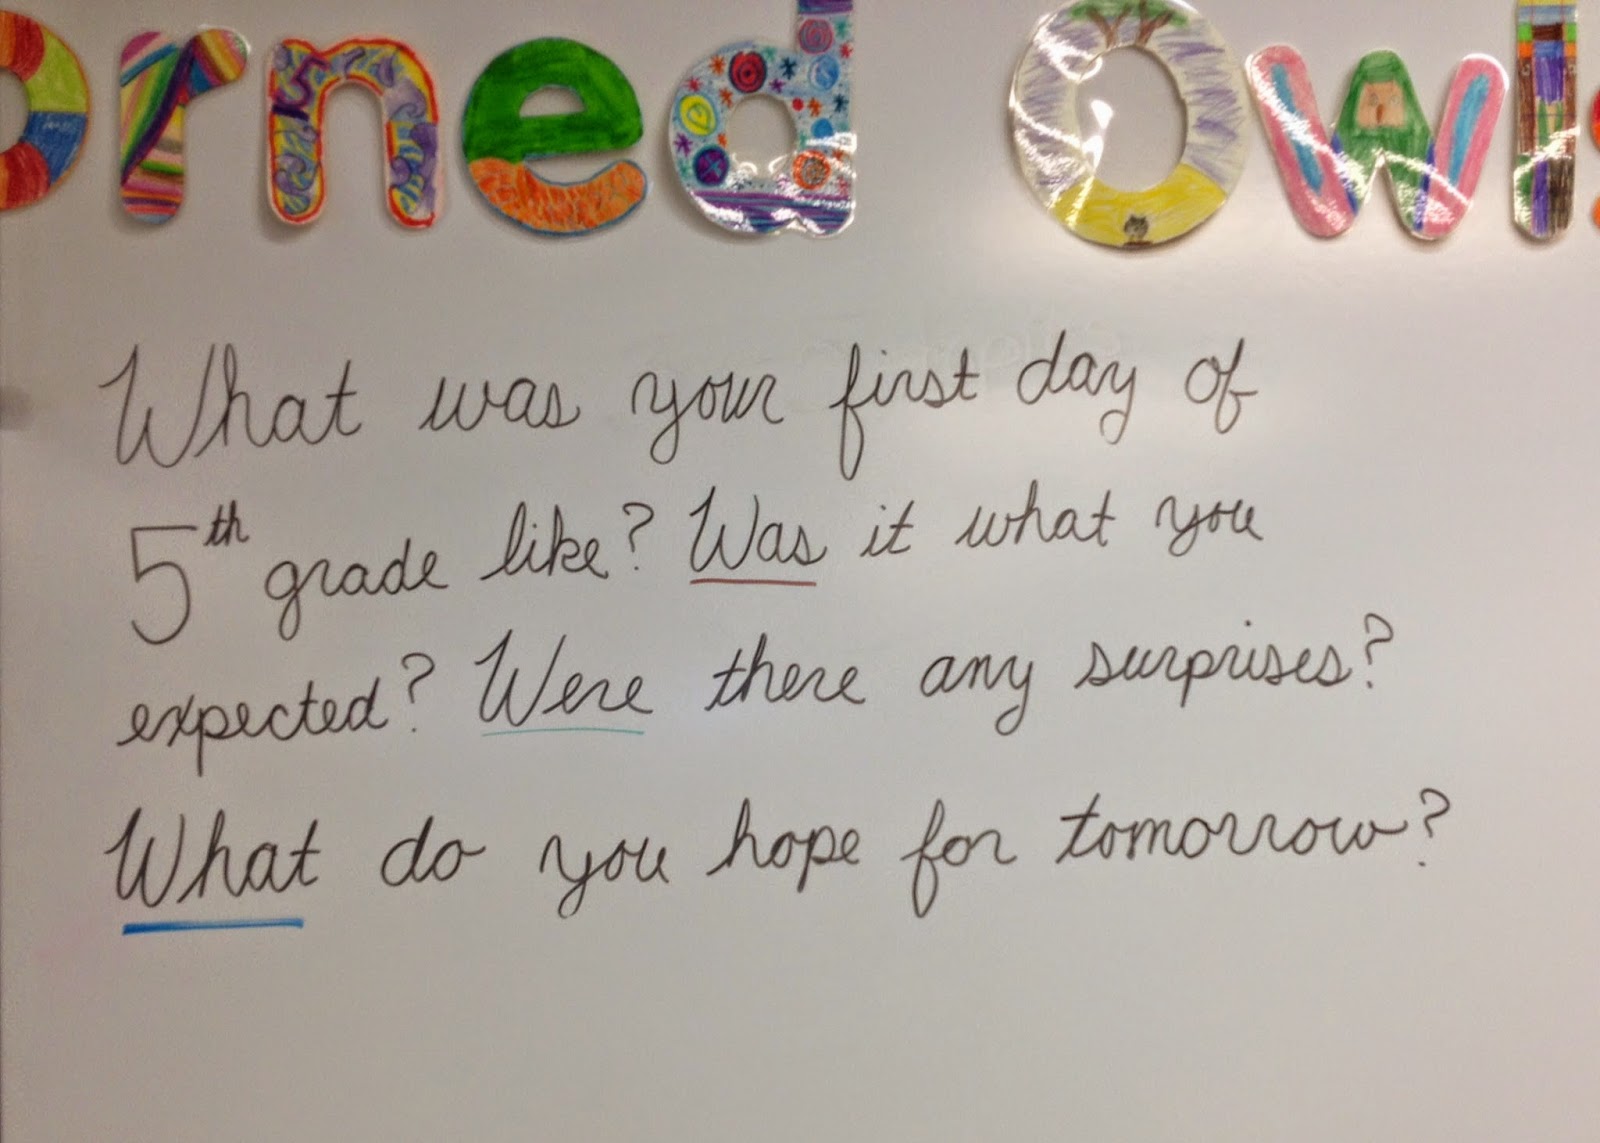 orned Owls
What was your first day of
5th grade like? Was it what you
expected? Were there any surprises?
What do you hope for tomorrow?